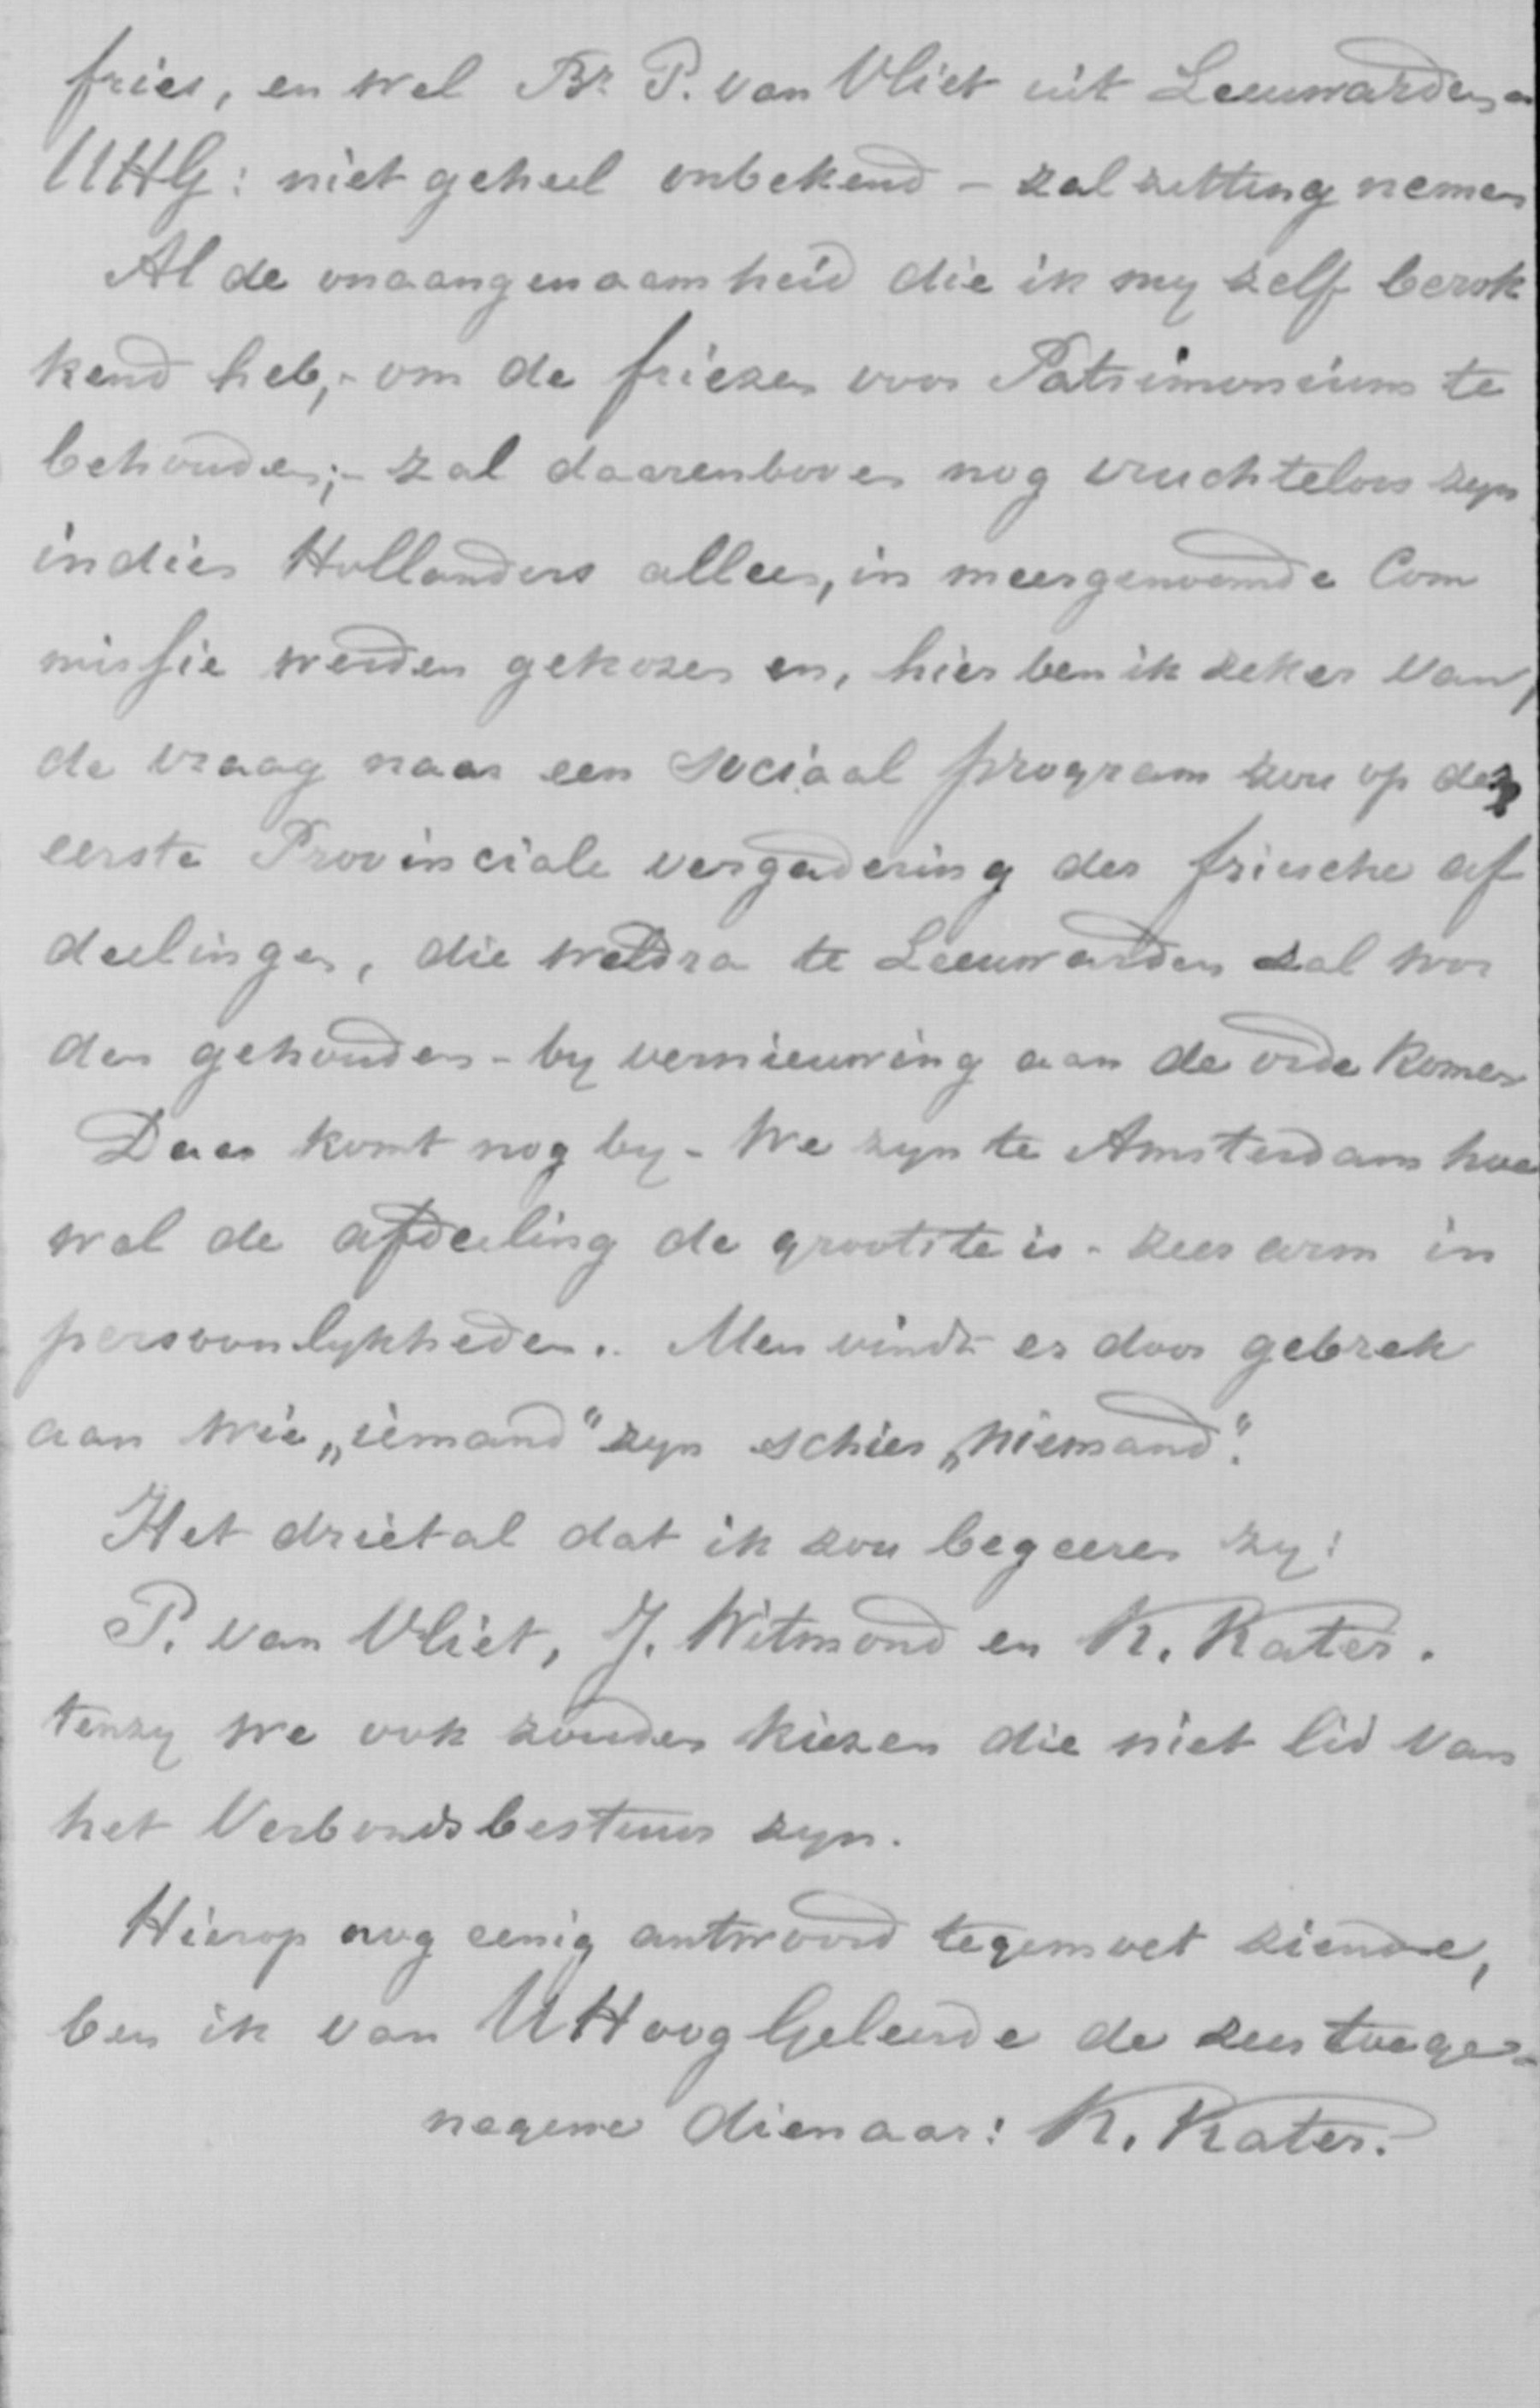 fries, en wel Br P. van Vliet uit Leeuwarden
UHG: niet geheel onbekend – zal zitting nemen
Al de onaangenaamheid die ik my zelf berok
kend heb,- om de friezen voor Patrimonium te
behouden;- zal daarenboven nog vruchteloos zyn
indien Hollanders alleen, in meergenoemde Com
missie werden gekozen en, hier ben ik zeker van,
de vraag naar een sociaal program zou op de
eerste Provinciale vergadering der friesche af
deelingen, die weldra te Leeuwarden zal wor
den gehouden - by vernieuwing aan de orde komen
Daar komt nog by - We zyn te Amsterdam hoe
wel de afdeeling de grootste is - zeer arm in
persoonlykheden. Men vindt er door gebrek
aan wie „iemand" zyn schier „niemand".
Het drietal dat ik zou begeeren zy:
P. van Vliet, J. Witmond en K. Kater.
tenzy we ook zouden kiezen die niet lid van
het Verbondsbestuur zyn.
Hierop nog eenig antwoord tegemoet ziende,
ben ik van UHoogGeleerde de zeer toege-
negene dienaar: K. Kater.